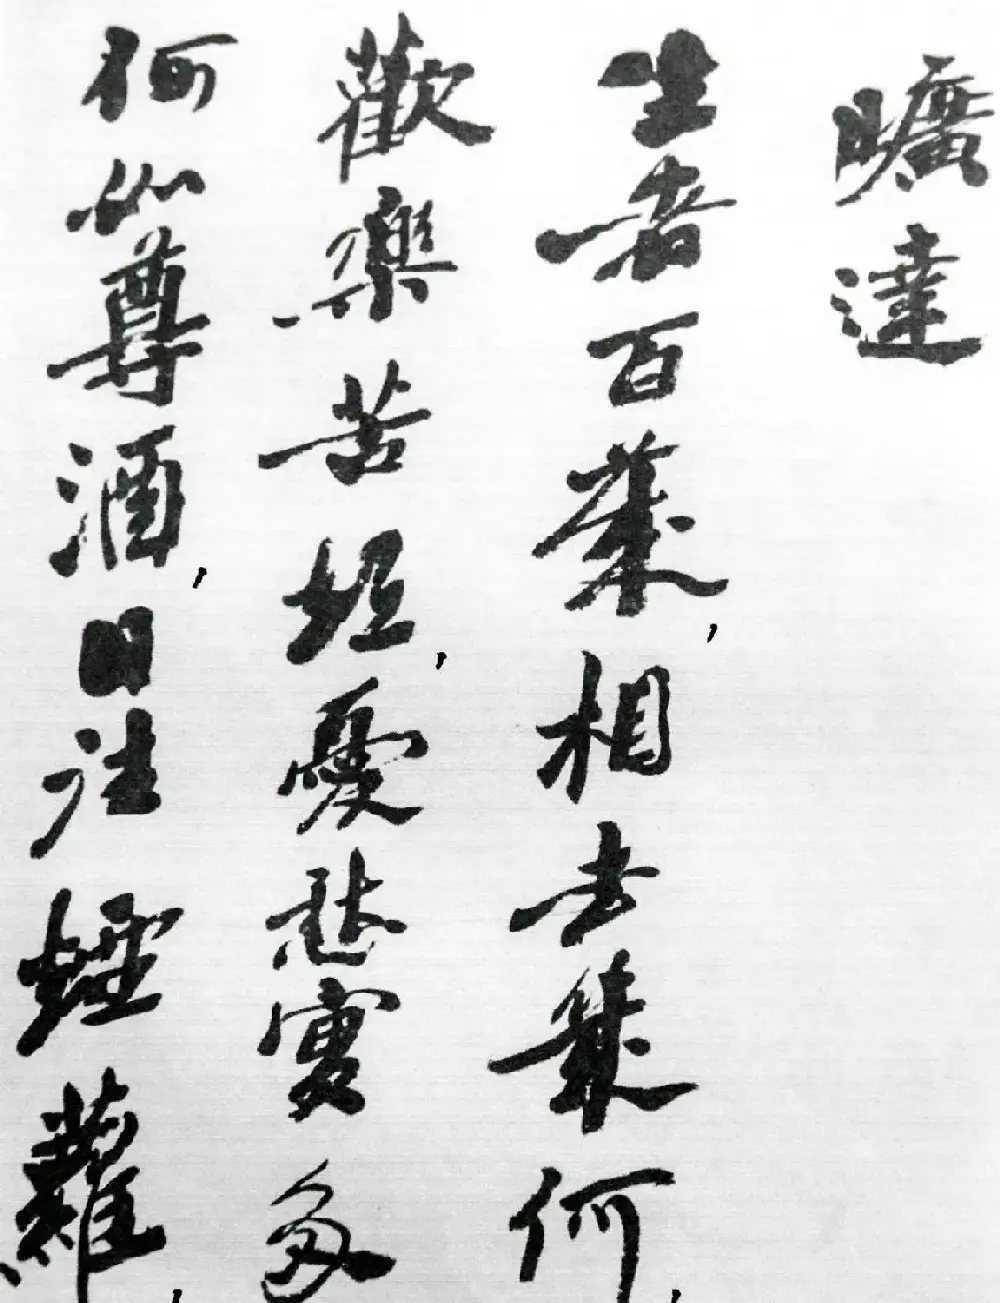 曠達
生者百歲,相去幾何,
歡樂苦短,憂愁實多
何如尊酒,日往煙蘿,